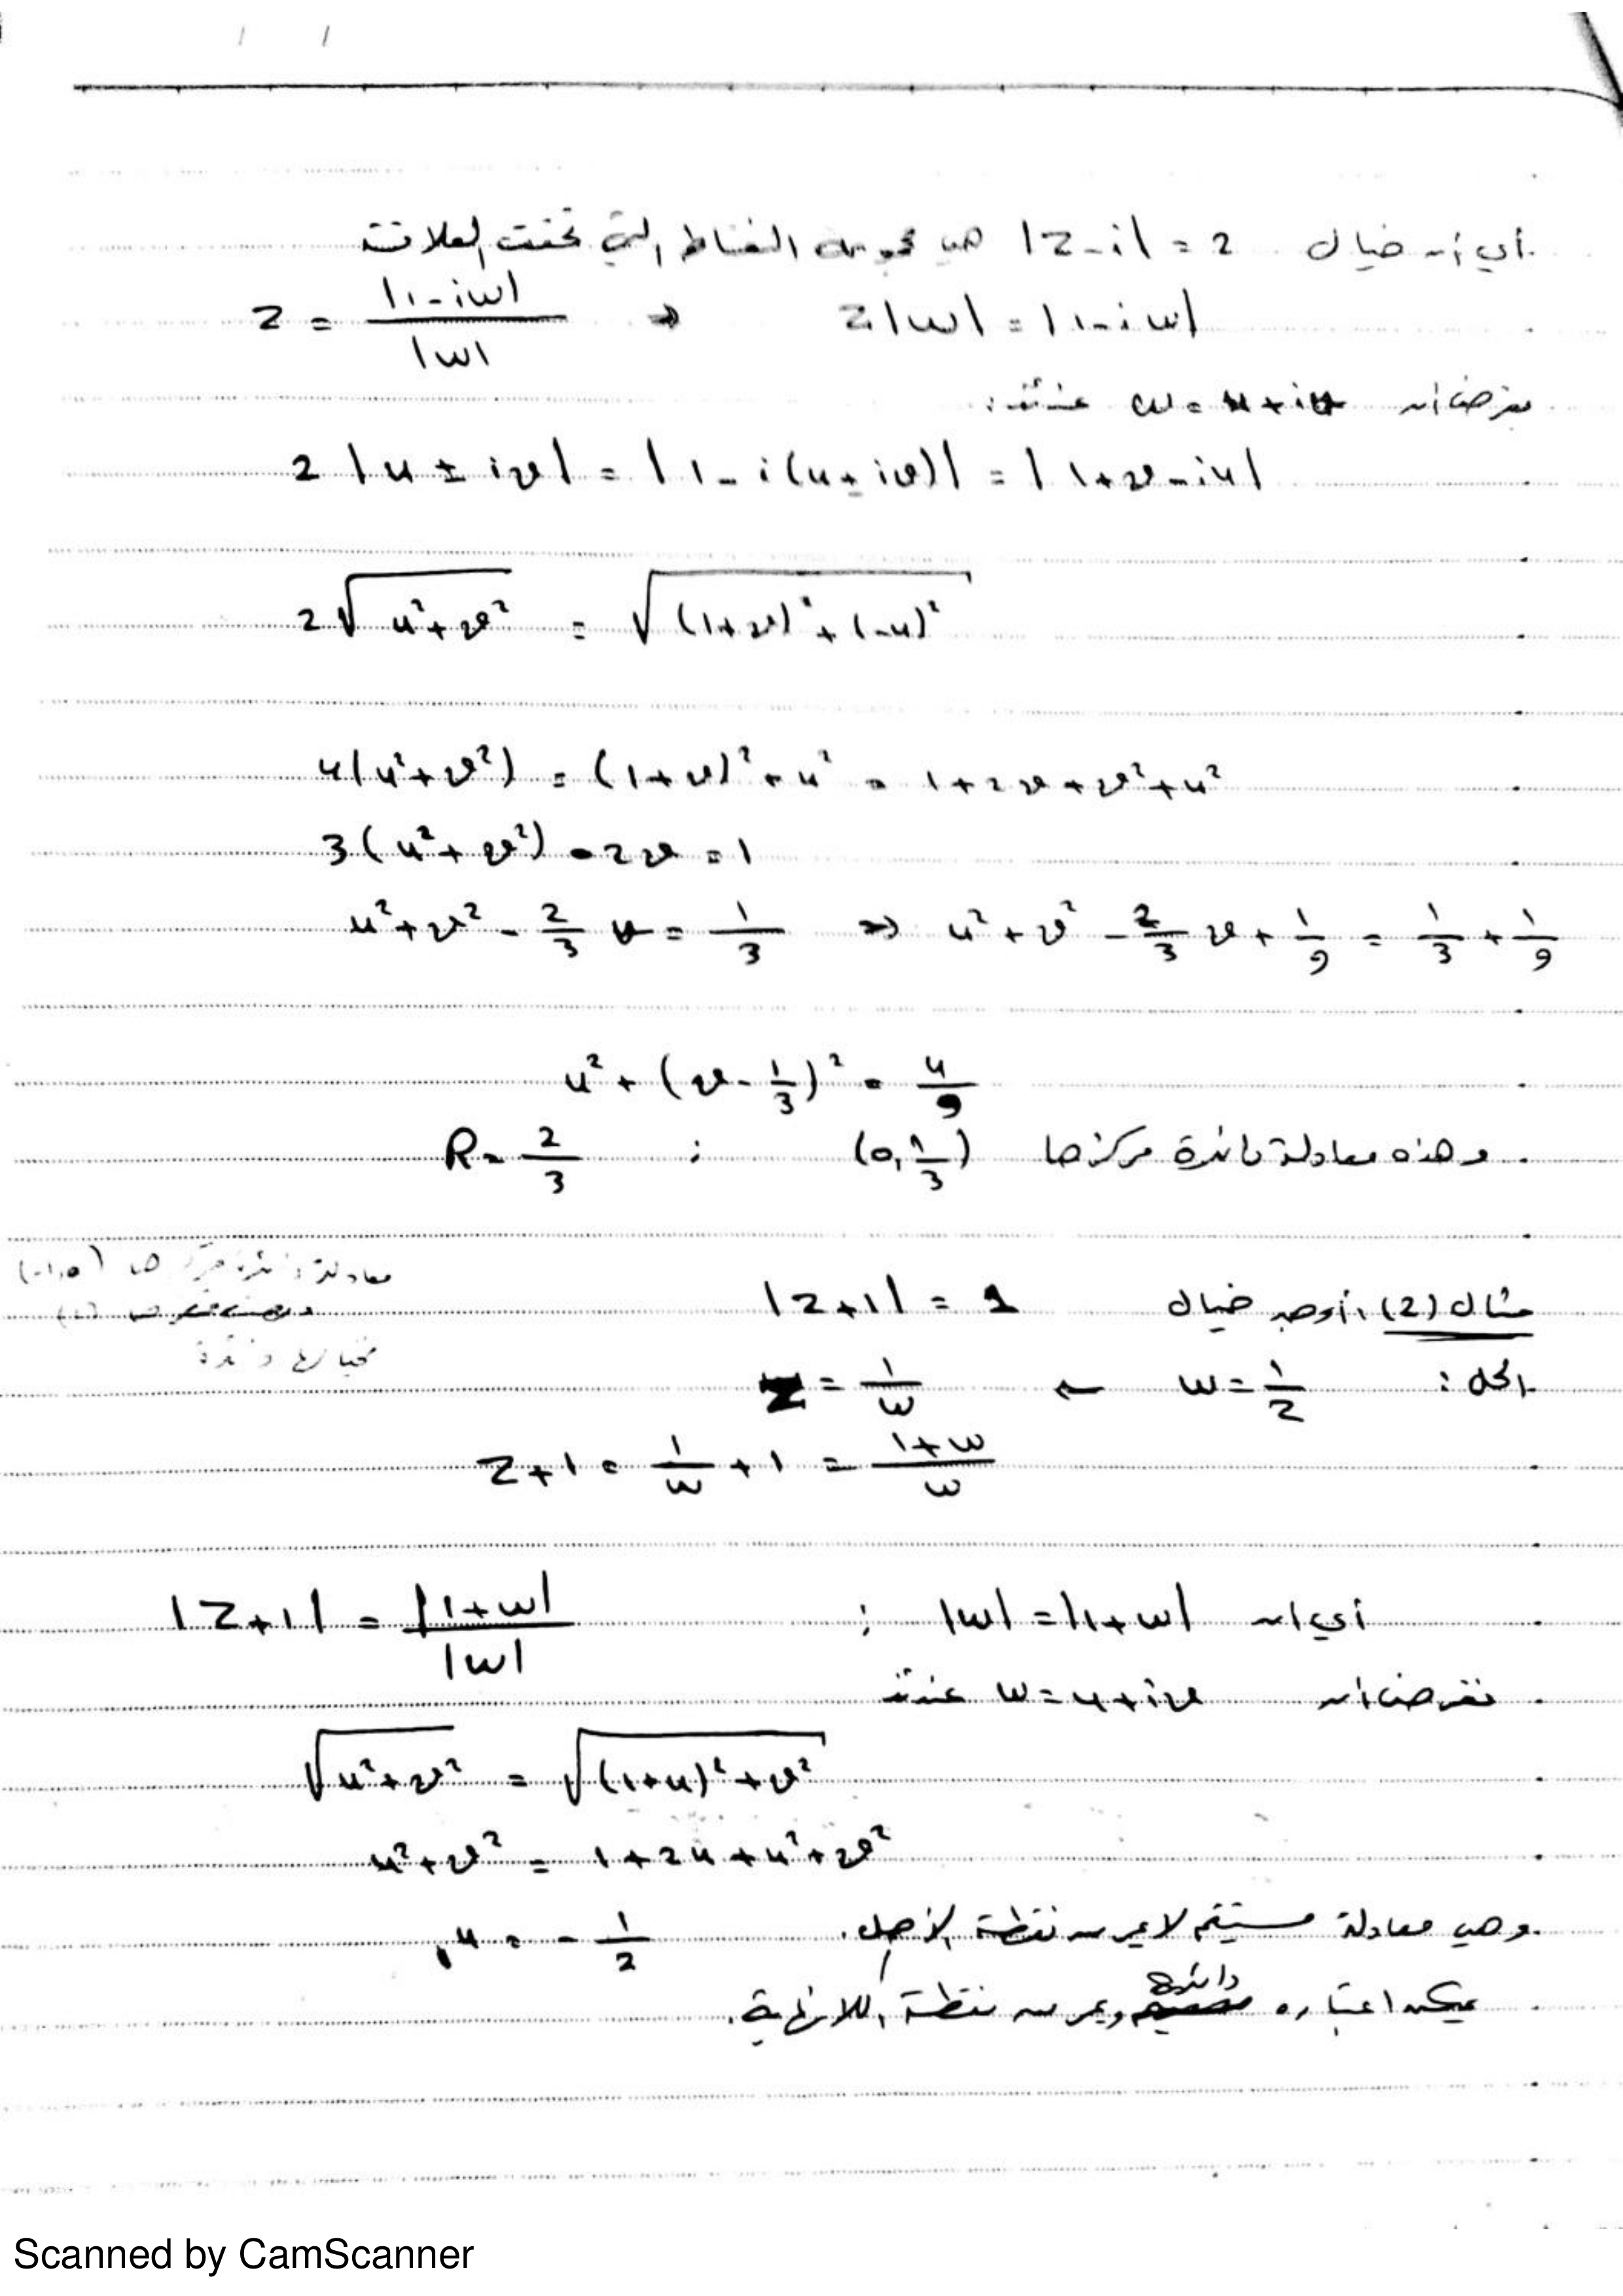 أي أن خيال |z-i| = 2 هي مجموعة النقاط التي تحقق العلاقة
2 = |1-iw| / |w| ⇒ 2|w| = |1-iw|
بفرض أن w = u+iv عندئذ:
2|u+iv| = |1-i(u+iv)| = |1+v-iu|
2√(u²+v²) = √((1+v)²+(-u)²)
4(u²+v²) = (1+v)²+u² = 1+2v+v²+u²
3(u²+v²) - 2v = 1
u²+v² - 2/3 v = 1/3 ⇒ u²+v² - 2/3 v + 1/9 = 1/3 + 1/9
u² + (v - 1/3)² = 4/9
وهذه معادلة دائرة مركزها (0, 1/3) ; R = 2/3
مثال (2): أوجد خيال |z+1| = 1
معادلة دائرة مركزها (-1,0)
خيالها دائرة
الحل: w = 1/z ← z = 1/w
z+1 = 1/w + 1 = (1+w)/w
|z+1| = |1+w| / |w| ; أي أن |w| = |1+w|
نفرض أن w = u+iv عندئذ
√(u²+v²) = √((1+u)²+v²)
u²+v² = 1+2u+u²+v²
u = -1/2 وهي معادلة مستقيم لا يمر من نقطة الأصل.
يمكن اعتباره دائرة ويمر من نقطة اللانهاية.
Scanned by CamScanner